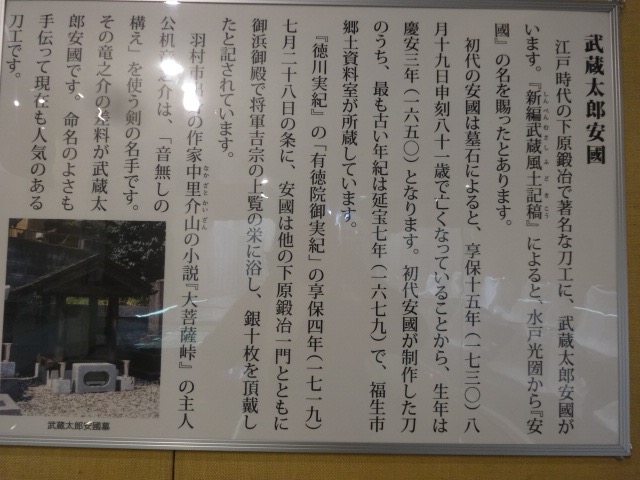 武蔵太郎安國
江戸時代の下原鍛冶で著名な刀工に、武蔵太郎安國が
います。『新編武蔵風土記稿』によると、水戸光圀から『安
しんぺんむさしふどきこう
國』の名を賜ったとあります。
初代の安國は墓石によると、享保十五年(一七三〇)八
月十九日申刻八十一歳で亡くなっていることから、生年は
慶安三年(一六五〇)となります。初代安國が制作した刀
のうち、最も古い年紀は延宝七年(一六七九)で、福生市
郷土資料室が所蔵しています。
『徳川実紀』の「有徳院御実紀」の享保四年(一七一九)
七月二十八日の条に、安國は他の下原鍛冶一門とともに
御浜御殿で将軍吉宗の上覧の栄に浴し、銀十枚を頂戴し
たと記されています。
羽村市出身の作家中里介山の小説『大菩薩峠』の主人
なかざとかいざん
公机竜之介は、「音無しの
構え」を使う剣の名手です。
その竜之介の差料が武蔵太
郎安國です。命名のよさも
手伝って現在も人気のある
刀工です。
武蔵太郎安國墓